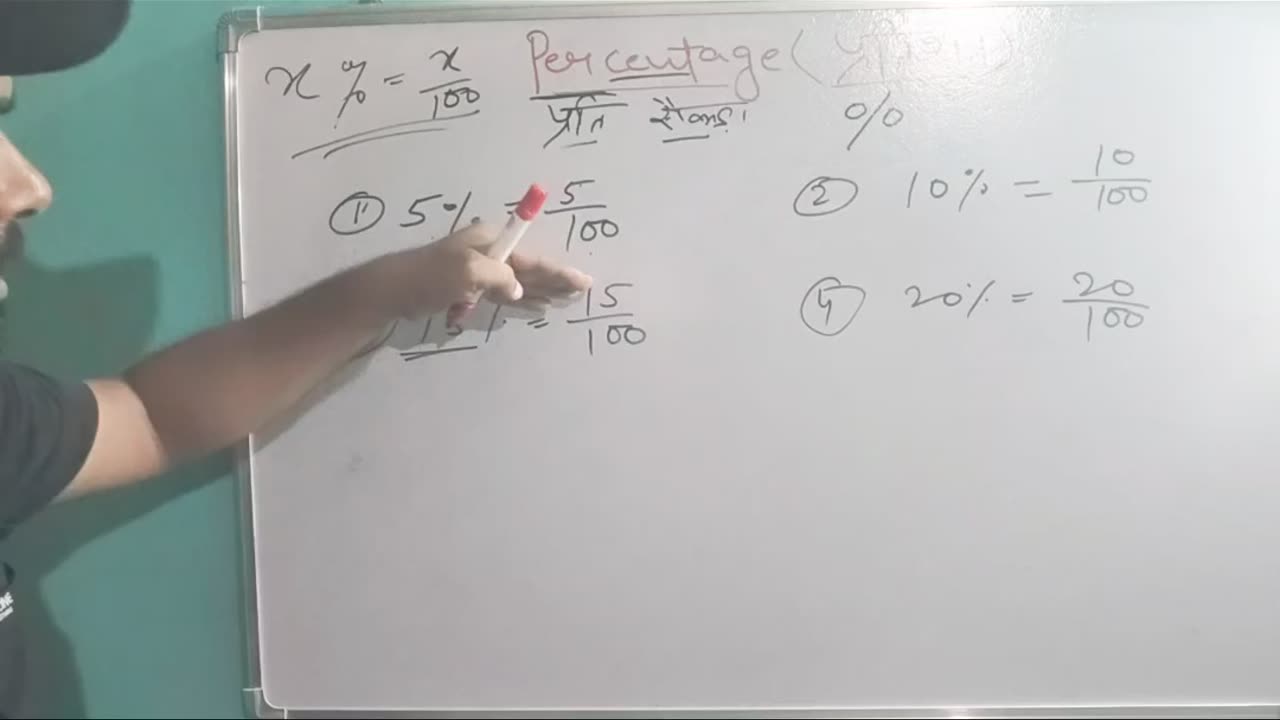 x % = x/100 Percentage ( प्रतिशत )
प्रति सैकड़ा %
① 5% = 5/100 ② 10% = 10/100
15% = 15/100 ④ 20% = 20/100